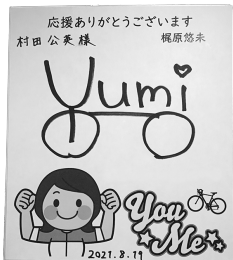 応援ありがとうございます
村田 公英 様
梶原悠未
Yumi
You
Me
2021.8.19